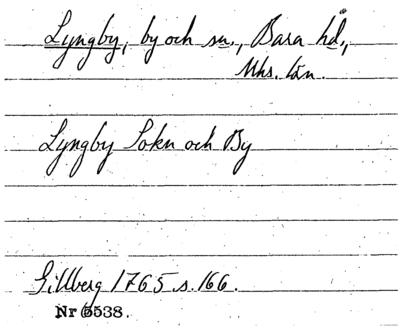 Lyngby, by och sn., Bara hd.,
Mhs. län.
Lyngby Sokn och By
Gillberg 1765 s. 166.
Nr 5538.